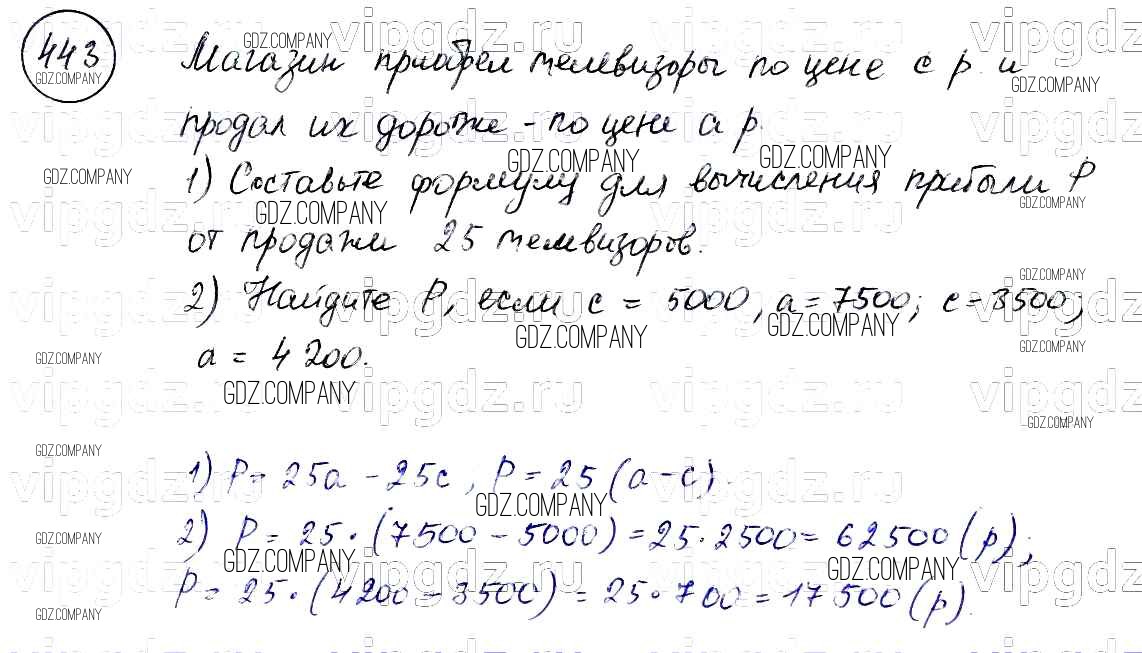 443
Магазин приобрел телевизоры по цене с р. и
продал их дороже - по цене а р.
1) Составьте формулу для вычисления прибыли Р
от продажи 25 телевизоров.
2) Найдите Р, если с = 5000, а = 7500; с = 3500;
а = 4200.
1) Р = 25а - 25с, Р = 25(а-с).
2) Р = 25·(7500 - 5000) = 25·2500 = 62500(р);
Р = 25·(4200 - 3500) = 25·700 = 17500(р).